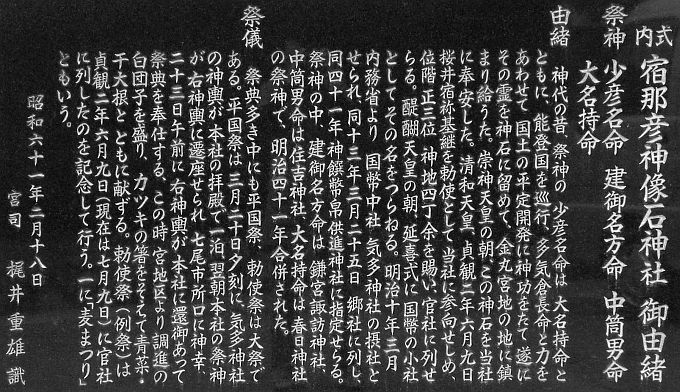 式内 宿那彦神像石神社 御由緒
祭神 少彦名命 建御名方命 中筒男命
大名持命
由緒
神代の昔、祭神の少彦名命は大名持命と
ともに、能登国を巡行、多気倉長命と力を
あわせて国土の平定開発に神功をたて遂に
その霊を神石に留めて、金丸宮地の地に鎮
まり給うた。崇神天皇の朝、この神石を当社
に奉安した。清和天皇、貞観二年六月九日
桜井宿祢基継を勅使として当社に参向せしめ、
位階正三位、神地四丁余を賜い、官社に列せ
らる。醍醐天皇の朝、延喜式に国幣の小社
としてその名をつらねる。明治十年三月
内務省より、国幣中社、気多神社の摂社と
せられ、同十三年三月二十五日 郷社に列し、
同四十一年神饌幣帛供進神社に指定せらる。
祭神の中、建御名方命は、鎌宮諏訪神社、
中筒男命は住吉神社、大名持命は春日神社
の祭神で、明治四十一年合併された。
祭儀
祭典多き中にも平国祭、勅使祭は大祭で
ある。平国祭は三月二十日夕刻に、気多神社
の神輿が本社の拝殿で一泊、翌朝本社の祭神
が右神輿に遷座せられ、七尾市所口に神幸、
二十三日午前に右神輿が本社に還御あって
祭典を奉仕する。この時、宮地区より調進の
白団子を盛り、カツギの箸をそえて青菜・
干大根とともに献ずる。勅使祭(例祭)は、
貞観二年六月九日(現在は七月九日)に官社
に列したのを記念して行う。一に、麦まつり
ともいう。
昭和六十一年二月十八日
宮司 梶井重雄 識